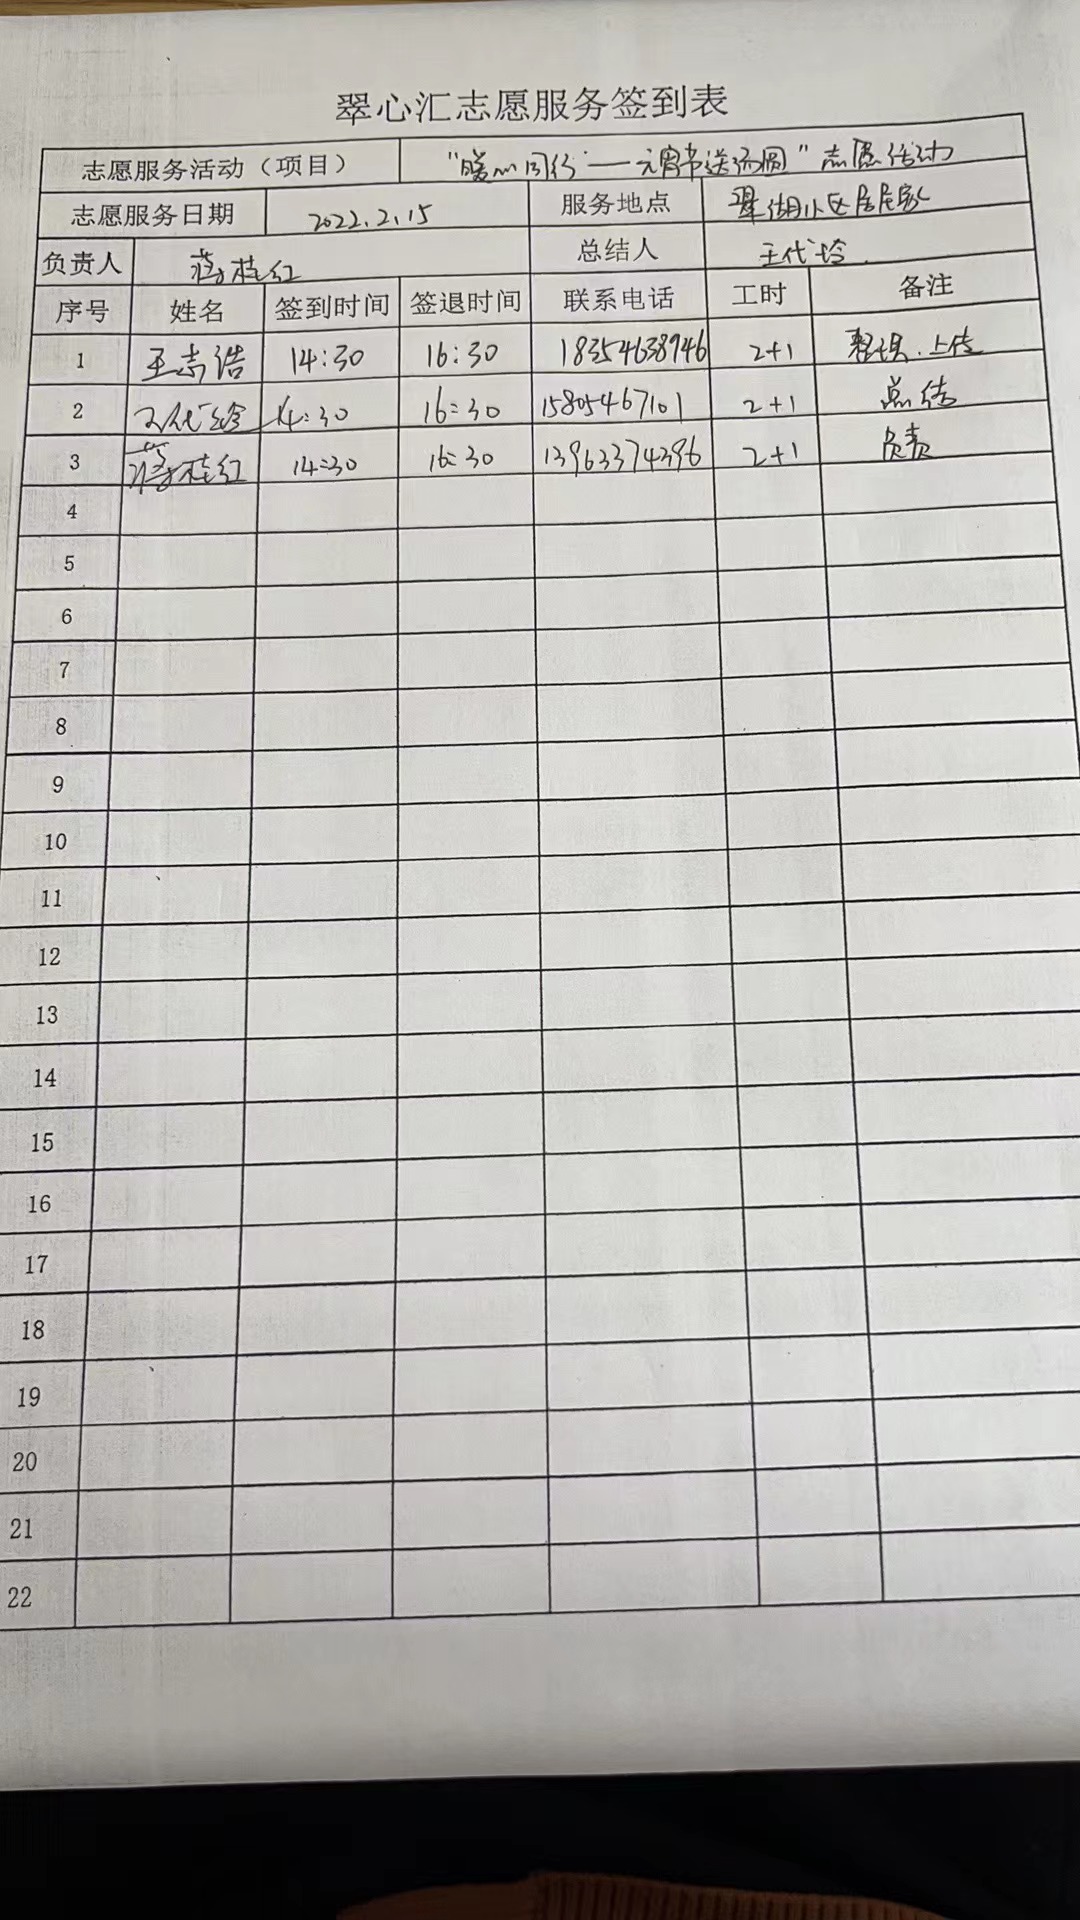 翠心汇志愿服务签到表
志愿服务活动（项目） "暖心同行——元宵节送汤圆"志愿活动
志愿服务日期 2022.2.15 服务地点 翠湖小区居民家
负责人 蒋桂红 总结人 王代玲
序号 姓名 签到时间 签退时间 联系电话 工时 备注
1 王志浩 14:30 16:30 18354638946 2+1 上传
2 14:30 16:30 15805467101 2+1 总结
3 蒋桂红 14:30 16:30 13963374396 2+1 负责
4
5
6
7
8
9
10
11
12
13
14
15
16
17
18
19
20
21
22